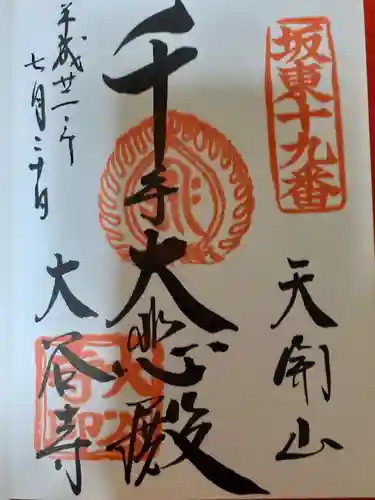 坂東十九番
天開山
千手大悲殿
平成廿一年
七月二十日
大谷寺